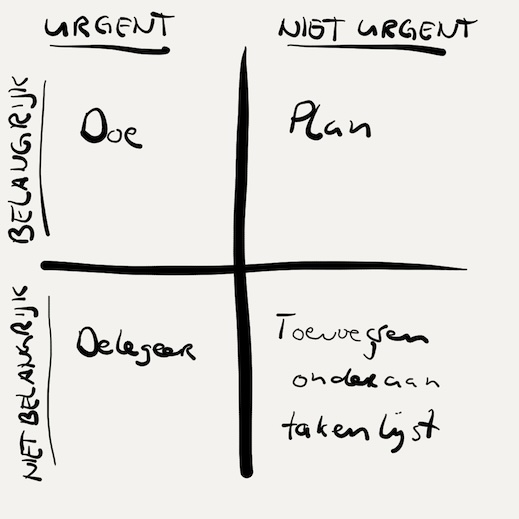 URGENT
NIET URGENT
BELANGRIJK
Doe
Plan
NIET BELANGRIJK
Delegeer
Toevoegen
onderaan
takenlijst